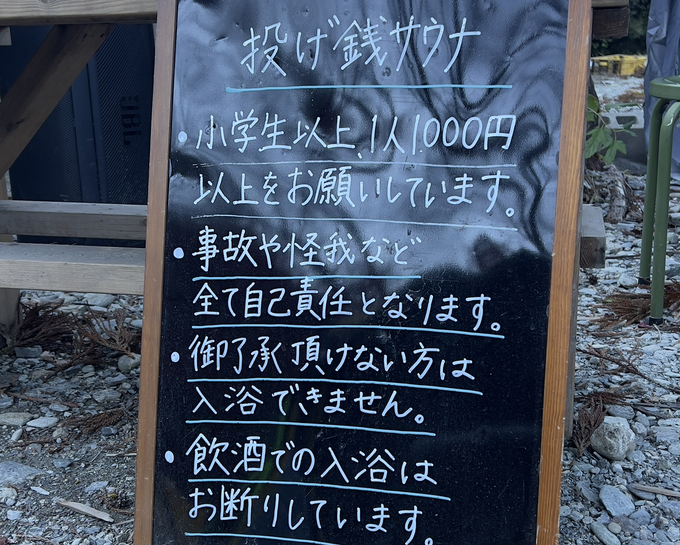 投げ銭サウナ
・小学生以上、1人1000円
以上をお願いしています。
・事故や怪我など
全て自己責任となります。
・御了承頂けない方は
入浴できません。
・飲酒での入浴は
お断りしています。
JBL